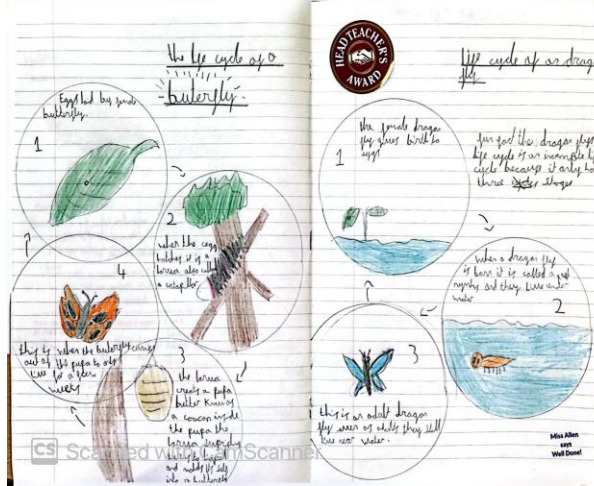 the life cycle of a
buterfly
Eggs laid by female
butterfly.
1
2
when the egg
hatches it is a
larva also called
a caterpiller
3
the larva
creats a pupa
better known as
a cocoon inside
the pupa the
larva
and
into a butterfly
4
this is when the buterfly comes
out of its pupa to only
live for a few
weeks
CS Scanned with CamScanner
HEAD TEACHER'S
AWARD
life cycle of a drago
fly
1
the female dragon
fly gives birth to
eggs
fun fact the dragon flys
life cycle is an
cycle because it only ha
three stages
2
when a dragon fly
is born it is called a
nymph and they live under
water
3
this is an adult dragon
fly even as adults they still
live near water.
Miss Allen
says
Well Done!